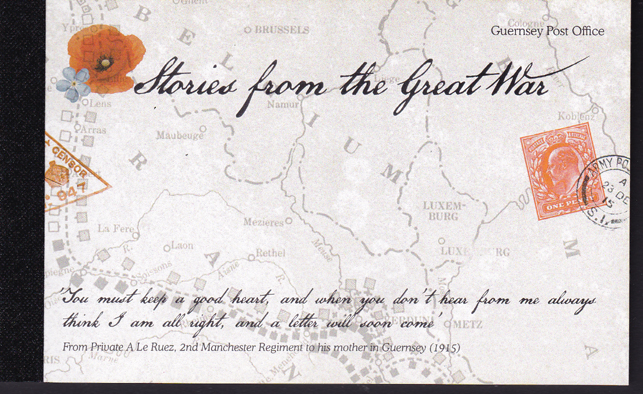 Guernsey Post Office
BRUSSELS
Cologne
Stories from the Great War
Lens
Namur
Koblenz
Arras
Maubeuge
CENSOR
947
ARMY PO
A
23 DE
15
S.1.
ONE PE
LUXEM-
BURG
Mezieres
La Fere
Laon
LUXEMBURG
Rethel
Soissons
Aisne
Meuse
'You must keep a good heart, and when you don't hear from me always
think I am all right, and a letter will soon come'
VERDUN
METZ
From Private A Le Ruez, 2nd Manchester Regiment to his mother in Guernsey (1915)
Marne